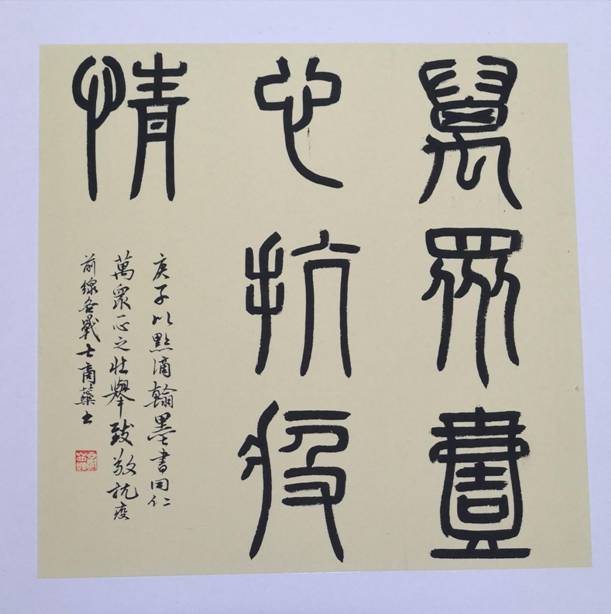 萬眾壹
心抗疫
情
庚子以點滴翰墨書同仁
萬眾一心之壯舉致敬抗疫
前線各戰士商